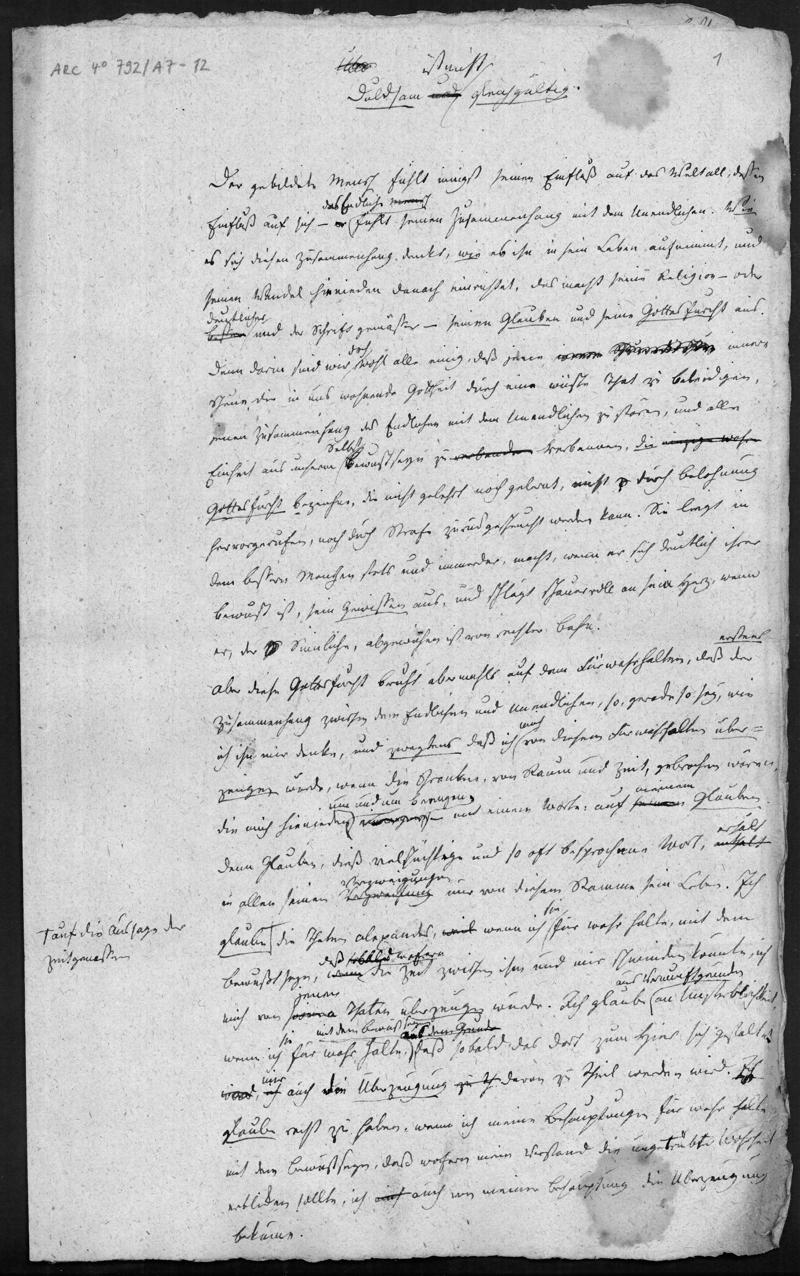 ARC 4° 792/A7-12
1
Über ist nicht
Duldsam und gleichgültig.
Der gebildete Mensch fühlt innigst seinen Einfluß auf das Weltall, dessen
Einfluß auf sich – er das Endliche Mensch fühlt seinen Zusammenhang mit dem Unendlichen. Wie
er sich diesen Zusammenhang denkt, wie er ihn in sein Leben aufnimmt, und
seinen Wandel hienieden danach einrichtet, das macht seine Religion – oder
deutlicher und der Schrift gemässer – seinen Glauben und seine Gottesfurcht aus.
Denn darin sind wir doch wohl alle einig, daß jene innere
Scheue, die in uns wohnende Gottheit durch eine wüste That zu beleidigen,
jenen Zusammenhang des Endlichen mit dem Unendlichen zu stören, und alle
Einheit aus unserm Selbst bewustseyn zu verbannen, die einzige wahre
Gottesfurcht bezeichne, die nicht gelehrt noch gelernt, nicht durch Belohnung
hervorgerufen, noch durch Strafe zurückgescheucht werden kann. Sie liegt in
dem bessern Menschen stets und immerdar, macht, wenn er sich deutlich ihrer
bewust ist, sein Gewissen aus, und schlägt schauervoll an sein Herz, wenn
er, der Sinnliche, abgewichen ist von rechter Bahn.
Aber diese Gottesfurcht beruht abermahls auf dem Fürwahrhalten, daß erstens der
Zusammenhang zwischen dem Endlichen und Unendlichen, so, gerade so sey, wie
ich ihn mir denke, und zweytens daß ich mich von diesem Fürwahrhalten über-
zeugen würde, wenn die Schranken, von Raum und Zeit, gebrochen wären,
die mich hienieden um und um beengen, mit einem Worte: auf meinem Glauben
denn Glauben, dieß vielsüchtige und so oft besprochene Wort, erhält enthält
in allen seinen Verzweigungen nur von diesem Stamme sein Leben. Ich
glaube die Thaten Alexanders, weil wenn ich sie für wahr halte, mit dem
auf die Aussage der
Zeitgenossen
Bewußtseyn, daß wofern die Zeit zwischen ihm und mir schwinden könnte, ich
mich von jenen Thaten überzeugen würde. Ich glaube aus Vernunftgründen an Unsterblichkeit,
wenn ich sie für wahr halte, mit dem Bewußtseyn aus dem Grunde daß sobald das Dort zum Hier sich gestaltet
wird, mir auch die Überzeugung davon zu Theil werden wird. Ich
glaube recht zu haben, wenn ich meine Behauptungen für wahr halte
mit dem Bewustseyn, daß wofern mein Verstand die ungetrübte Wahrheit
erblicken sollte, ich auch von meiner Behauptung die Überzeugung
bekäme.